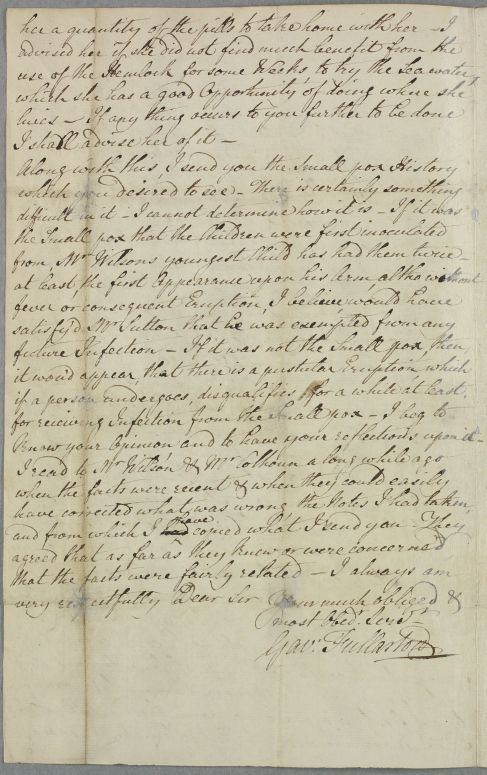 her a quantity of the pills to take home with her – I
advised her if she did not find much benefit from the
use of the Hemlock for some Weeks, to try the Sea water
which she has a good Opportunity of doing where she
lives – If any thing occurs to you further to be done
I shall advise her of it –
Along with this, I send you the Small pox History
which you desired to see – There is certainly something
difficult in it – I cannot determine how it is – If it was
the Small pox that the Children were first inoculated
from Mr Wilsons youngest Child has had them twice
at least, the first Appearance upon his Arm, altho without
fever or consequent Eruption, I believe, would have
satisfyd Mr Sutton that he was exempted from any
future Infection – If it was not the Small pox, then,
it would appear, that there is a pustular Eruption which
if a person undergoes, disqualifies, for a while at least,
for receiving Infection from the Small pox – I beg to
know your Opinion and to have your reflections upon it –
I read to Mr Wilson & Mr Colhoun a long while ago
when the facts were recent & when they could easily
have corrected what was wrong, the Notes I had taken,
and from which I have copied what I send you – They
agreed that as far as they knew or were concerned
that the facts were fairly related – I always am
very respectfully Dear Sir your much obliged &
most Obed. Servt.
Gav. Fullarton